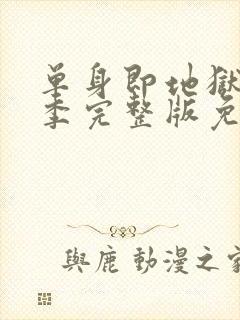 單身即地獄
季完整版免
與鹿 動漫之家